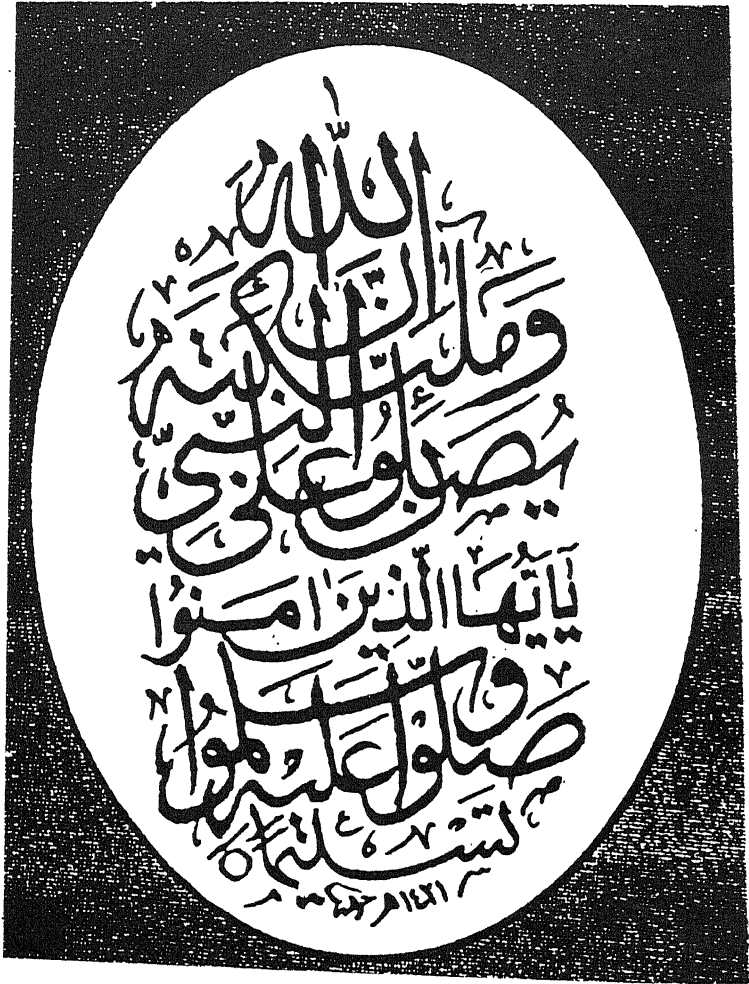 إن الله
وملئكته
يصلون على النبي
يأيها الذين امنوا
صلوا عليه وسلموا
تسليما
١٤٢١هـ